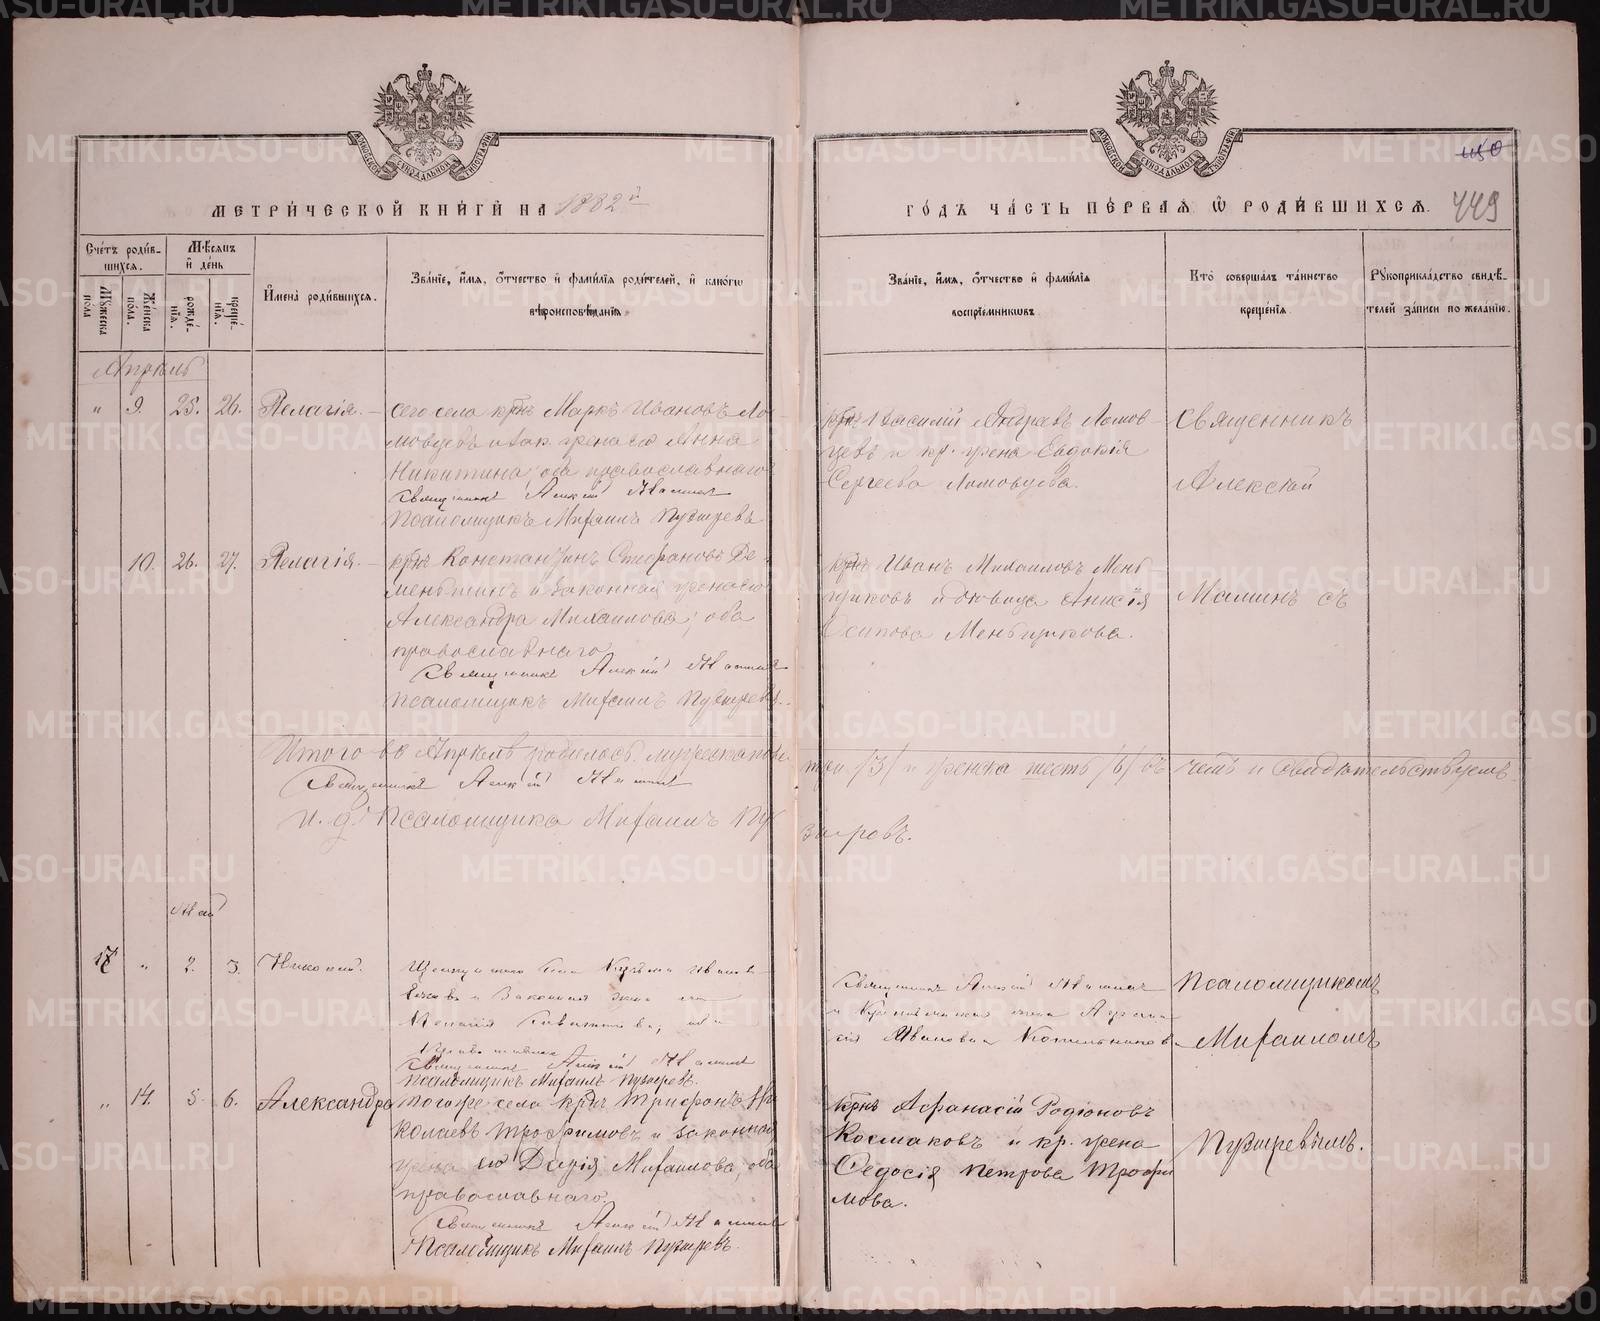 МЕТРИ́ЧЕСКОЙ КНИ́ГИ НА 1882й
ГО́ДЪ ЧА́СТЬ ПЕ́РВАЯ Ѡ РОДИ́ВШИХСЯ.
449
Сче́тъ роди́в-
шихся.
Мѣсяцъ
и де́нь
Му́жеска
пола
Же́нска
по́ла.
рожде́-
нїя.
креще́-
нїя.
И́мена роди́вшихся.
Зва́нїе, и́мя, о́тчество и фами́лїя роди́телей, и како́гѡ
вѣроисповѣ́данїя
Зва́нїе, и́мя, о́тчество и фами́лїя
воспрїе́мникѡвъ
Кто́ соверша́лъ та́инство
креще́нїя.
Рукоприкла́дство свидѣ́-
телей за́писи по жела́нїю.
Апрѣль
" 9. 25. 26. Пелагія.
сего села крн Маркъ Ивановъ Ло-
мовцевъ и зак. жена его Анна
Никитина, оба православнаго
Священникъ Алексій Маминъ
Псаломщикъ Михаилъ Пузыревъ
крн Василій Андреевъ Ломов-
цевъ и кр. жена Евдокія
Сергеева Ломовцева.
Священникъ
Алексій
10. 26. 27. Пелагія.
крн Константинъ Стефановъ
и законная жена его
Александра Михаилова; оба
православнаго
Священникъ Алексій Маминъ
Псаломщикъ Михаилъ Пузыревъ.
крн Иванъ Михаиловъ Мень
щиковъ и вдовица Анисія
Осипова Меньщикова.
Маминъ съ
Итого въ Апрѣлѣ родилось мужеска пола
три /3/ и женска шесть /6/ въ чемъ и свидѣтельствуемъ.
Священникъ Алексій Маминъ
и. д. Псаломщика Михаилъ Пу
зыревъ.
Май
" 2. 3. Николай.
и законная жена его
Священникъ Алексій Маминъ
Псаломщикъ Михаилъ Пузыревъ.
Священникъ Алексій Маминъ
Псаломщикомъ
Михаиломъ
" 14. 5. 6. Александра
тогоже села крн Трифонъ Ни
колаевъ Трофимовъ и законная
жена его Дарія Михаилова, оба
православнаго.
Священникъ Алексій Маминъ
Псаломщикъ Михаилъ Пузыревъ.
крн Афанасій Родіоновъ
Космаковъ и кр. жена
Ѳедосія Петрова Трофи
мова.
Пузыревымъ.
METRIKI.GASO-URAL.RU